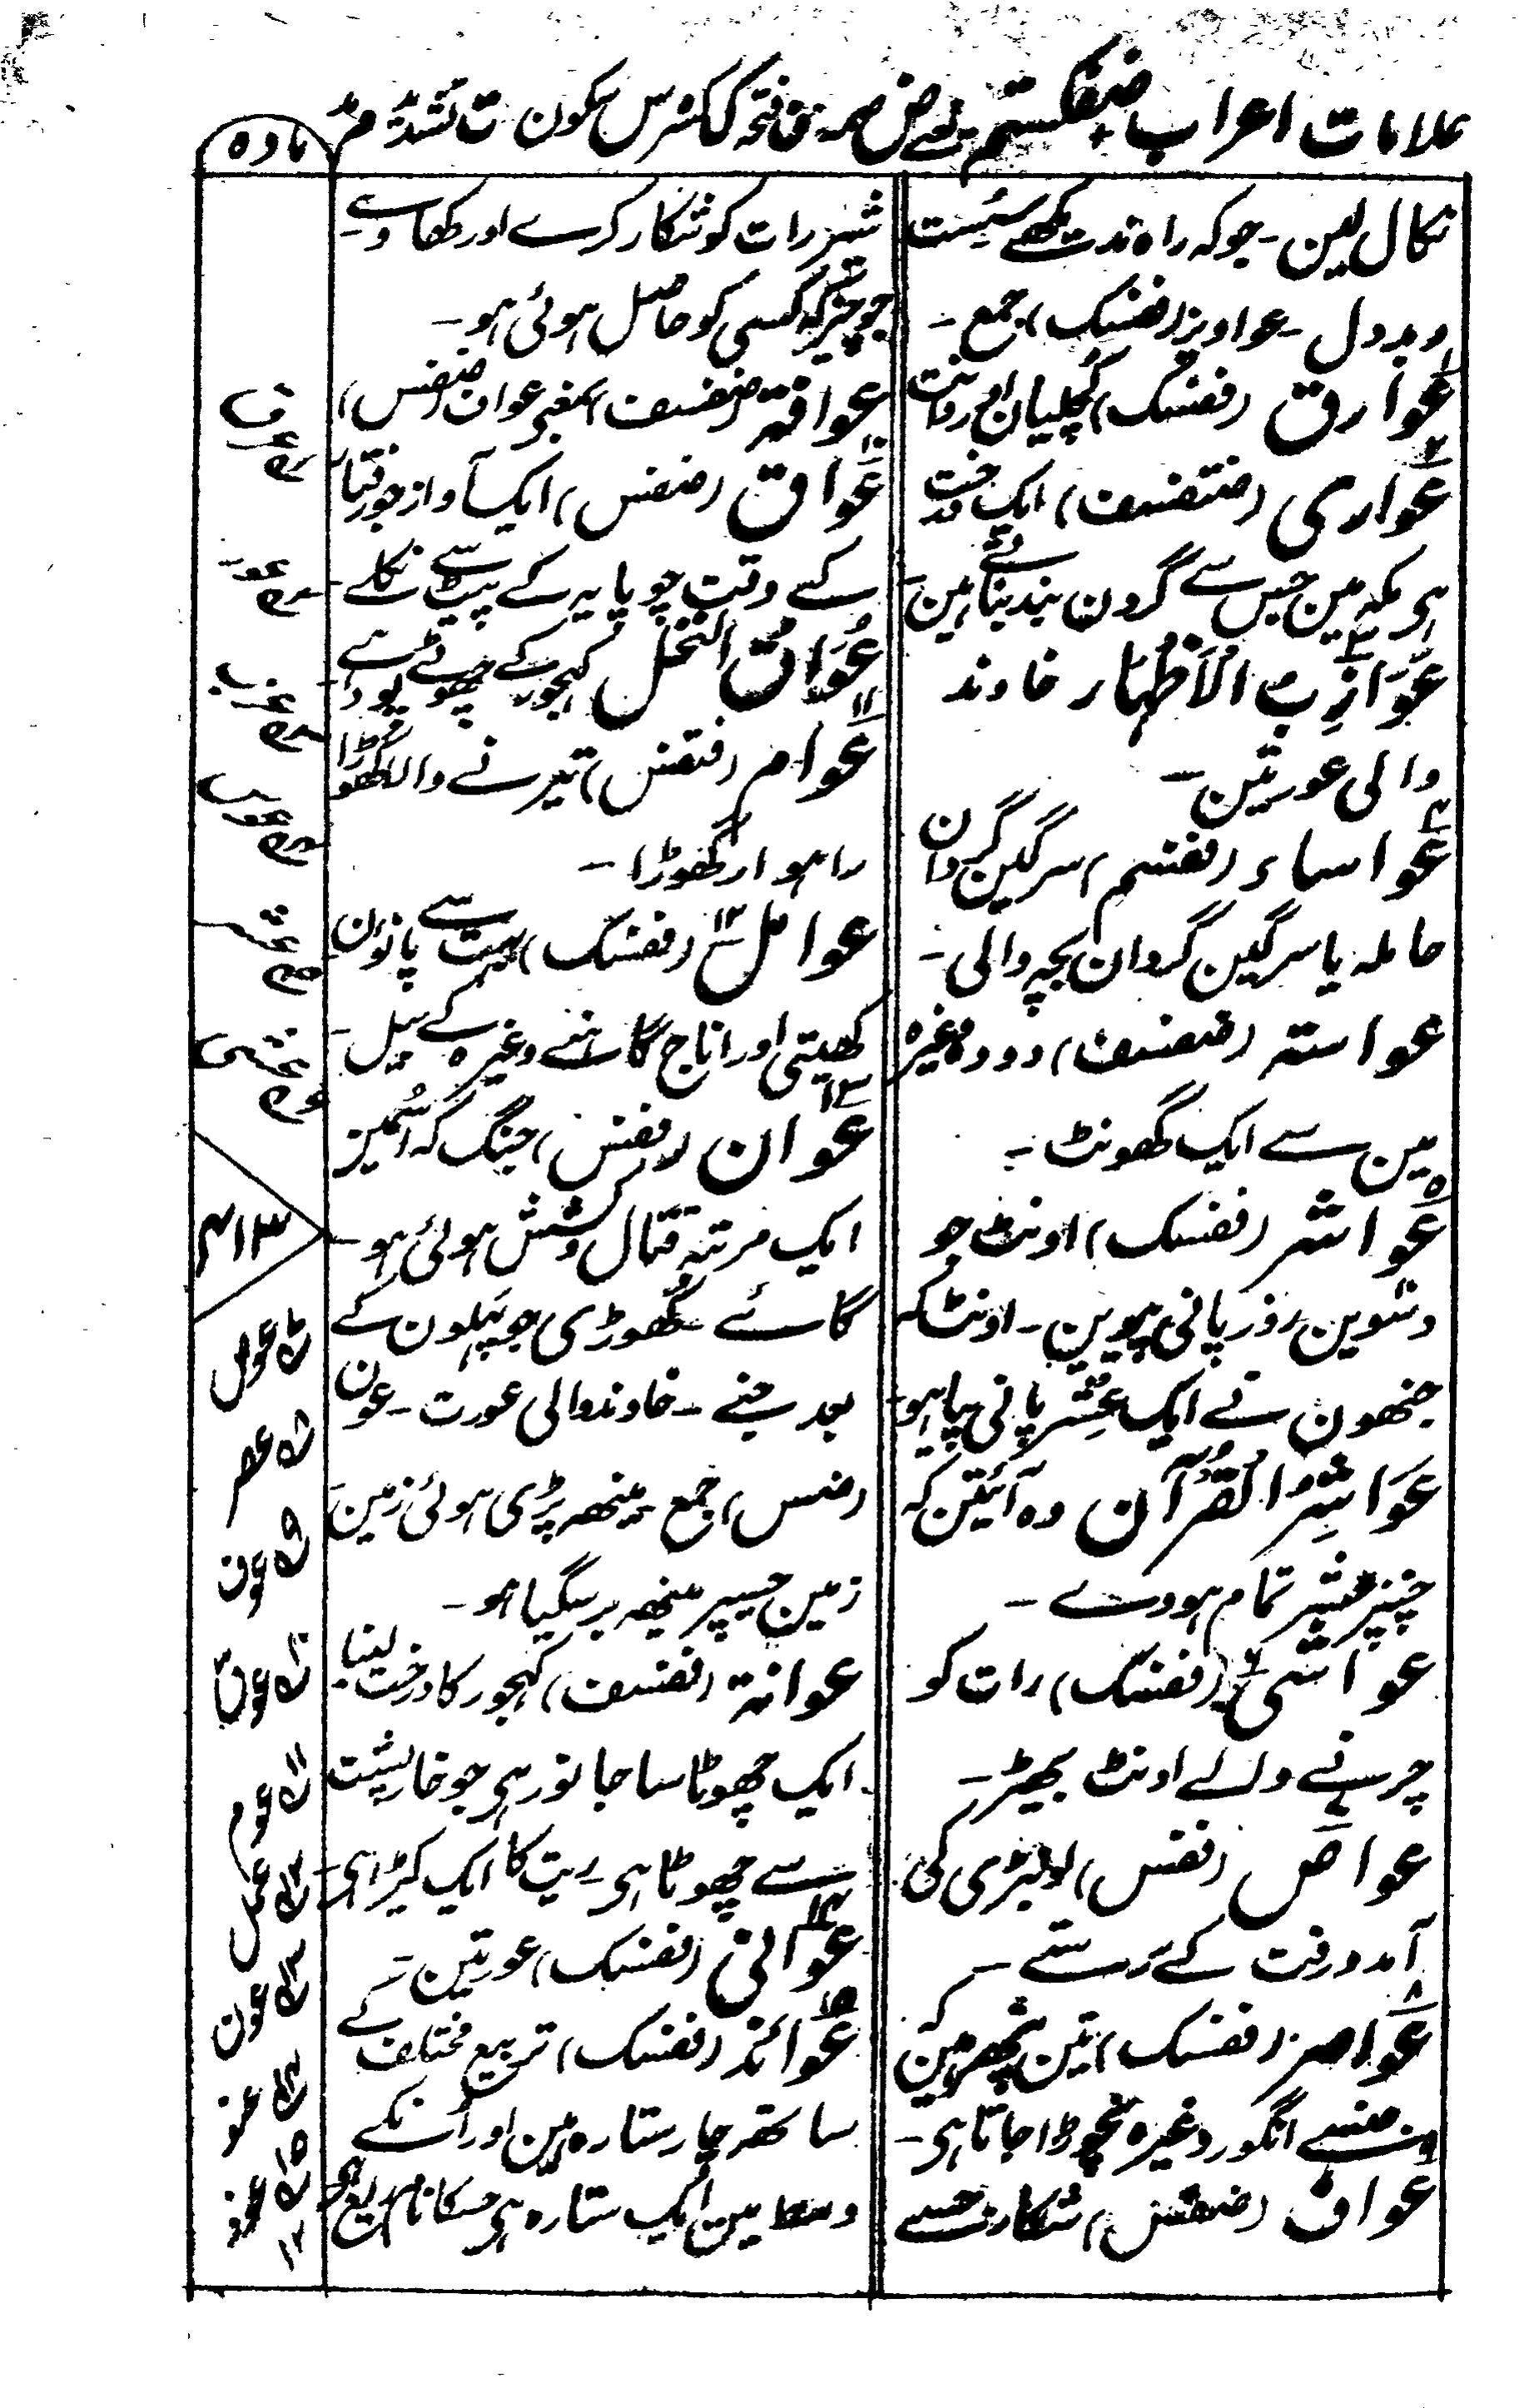 علامات اعراب ضفکستم یعنی ض ضمہ ف فتحہ ک کسر س سکون ت تشدید م مد
مادہ
نکال لین۔ جوکہ راہ ندیکھے سُست
وبددل۔ عواویز (فضک) جمع۔
عوارق (ففسک) کچلیان اور دانت
عواری (ضتفسف) ایک درخت
ہی مکہ مین جس سے گردن بند بناتے ہین۔
عوازب الاَظہار خاوند
والی عورتین۔
عواساء (ففسم) سرگین گردان
حاملہ یا سرگین گردان بچہ والی۔
عواستہ (ضفسف) دودھ وغیرہ
مین سے ایک گھونٹ۔
عواشر (ففسک) اونٹ جو
دسوین روز پانی پیوین۔ اونٹ کہ
جنھون نے ایک عِشر پانی پیا ہو۔
عَواشِرُ القُرْآن وہ آئتین کہ
جنپر عشر تمام ہووے۔
عواشی (ففسک) رات کو
چرنے والے اونٹ بھیڑ۔
عواص (ففس) لومڑی کی
آمدورفت کے رستے۔
عواصر (ففسک) تین پتھر ہین کہ
جنسے انگور وغیرہ نچوڑا جاتا ہی۔
عواف (ضفس) شکار جسے
شیر رات کو شکار کرے اور کھاوے۔
جو چیز کہ کسی کو حاصل ہوئی ہو۔
عوافۃ (ضفسف) بمعنی عواف (ضفس)
عواق (ضفس) ایک آواز جو رفتار
کے وقت چوپایہ کے پیٹ سے نکلے۔
عُوَاقُ النخل کہجور کے چھوٹے پودے۔
عوام (فتفس) تیرنے والا گھوڑا
راہوار گھوڑا۔
عوامل (ففسک) بہت سے پانون
کھیتی اور اناج گاہنے وغیرہ کے بیل۔
عوان (ففس) جنگ کہ اُسمین
ایک مرتبہ قتال وکشش ہوئی ہو۔
گائے۔ گھوڑی جو پہلون کے
بعد جنے۔ خاوند والی عورت۔ عون
(ضس) جمع۔ مینھ پڑی ہوئی زمین۔
زمین جسپر مینھ برسگیا ہو۔
عوانۃ (ففسف) کہجور کا درخت لنبا
ایک چھوٹا سا جانور ہی جو خارپشت
سے چھوٹا ہی۔ ریت کا ایک کیڑا ہی۔
عوانی (ففسک) عورتین۔
عوائذ (ففسک) تربیع مختلف کے
ساتھ چار ستارہ ہین اور اُنکے
وسط مین ایک ستارہ ہی جسکا نام ربع ہی
۱ عرق
۲ عور
۳ عزب
۵ عشر
۶ عشی
۴۱۳
۷ عوص
۸ عصر
۹ عوف
۱۰ عوق
۱۱ عوم
۱۲ عمل
۱۳ عون
۱۴ عنو
۱۵ عوذ
۱۲